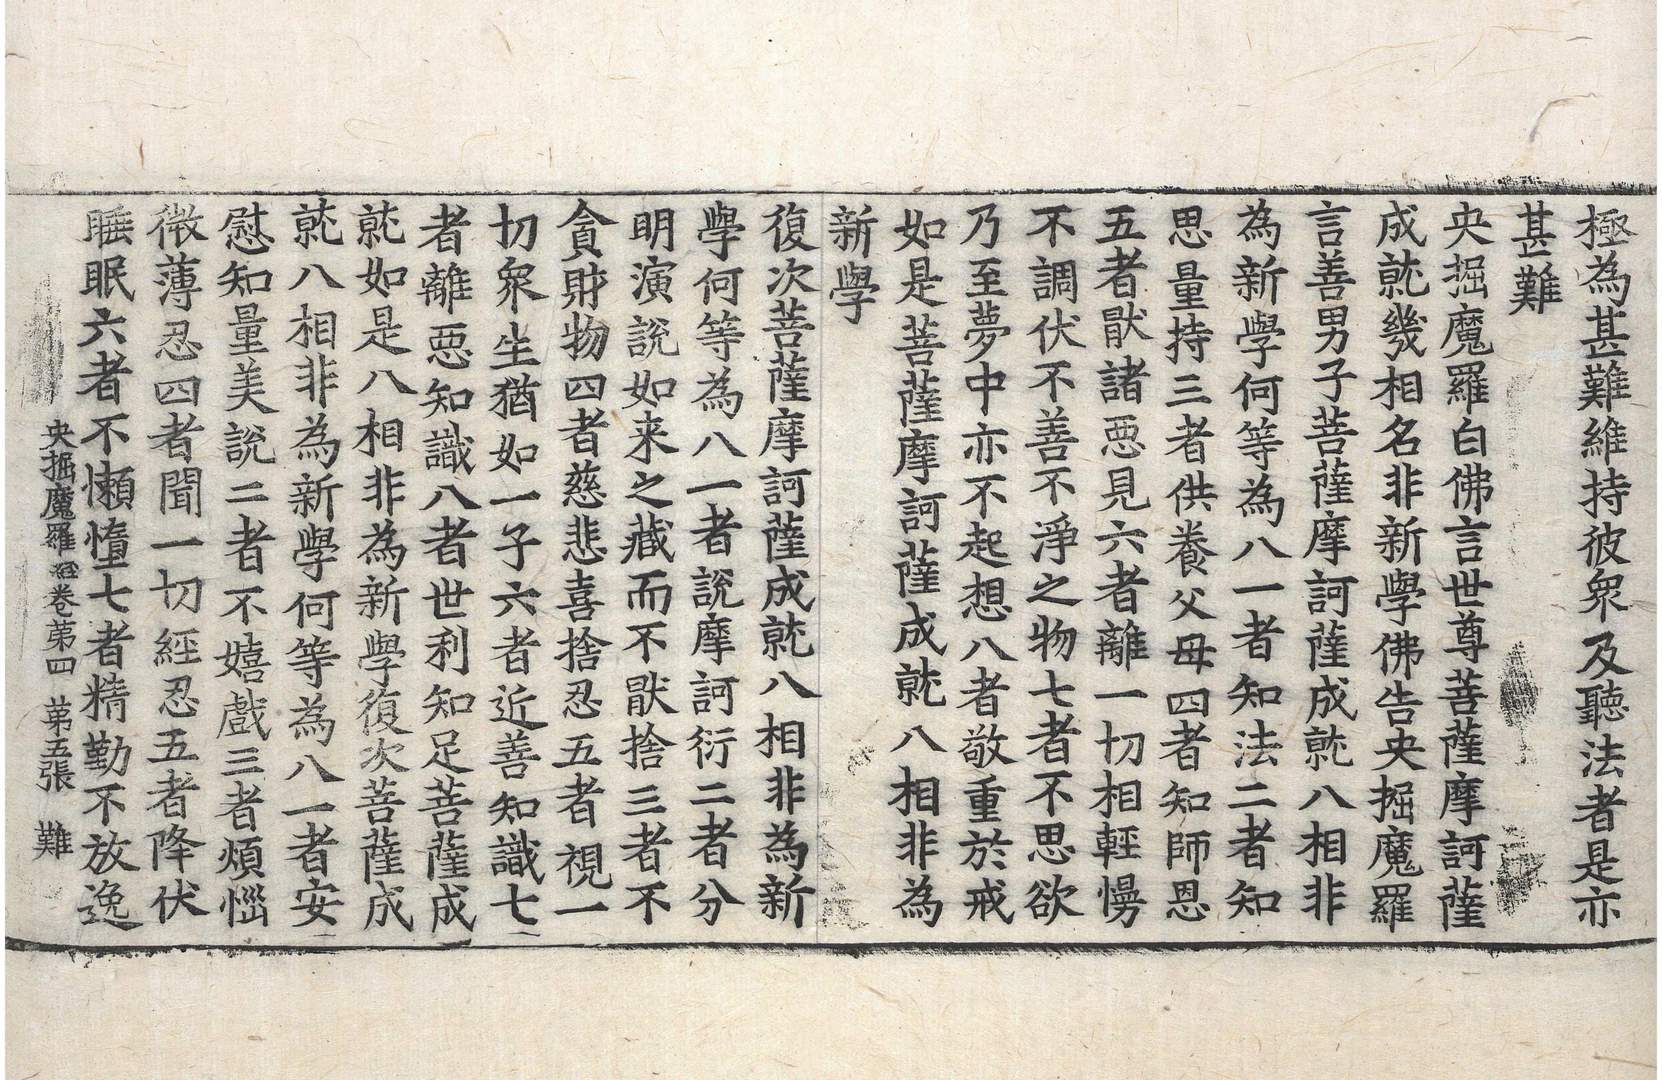 極為甚難維持彼衆及聽法者是亦
甚難
央掘魔羅白佛言世尊菩薩摩訶薩
成就幾相名非新學佛告央掘魔羅
言善男子菩薩摩訶薩成就八相非
為新學何等為八一者知法二者知
思量持三者供養父母四者知師恩
五者猒諸惡見六者離一切相輕慢
不調伏不善不淨之物七者不思欲
乃至夢中亦不起想八者敬重於戒
如是菩薩摩訶薩成就八相非為
新學
復次菩薩摩訶薩成就八相非為新
學何等為八一者說摩訶衍二者分
明演說如来之藏而不猒捨三者不
貪財物四者慈悲喜捨忍五者視一
切衆生猶如一子六者近善知識七
者離惡知識八者世利知足菩薩成
就如是八相非為新學復次菩薩成
就八相非為新學何等為八一者安
慰知量美說二者不嬉戲三者煩惱
微薄忍四者聞一切經忍五者降伏
睡眠六者不懶惰七者精勤不放逸
央掘魔羅経卷苐四 苐五張 難